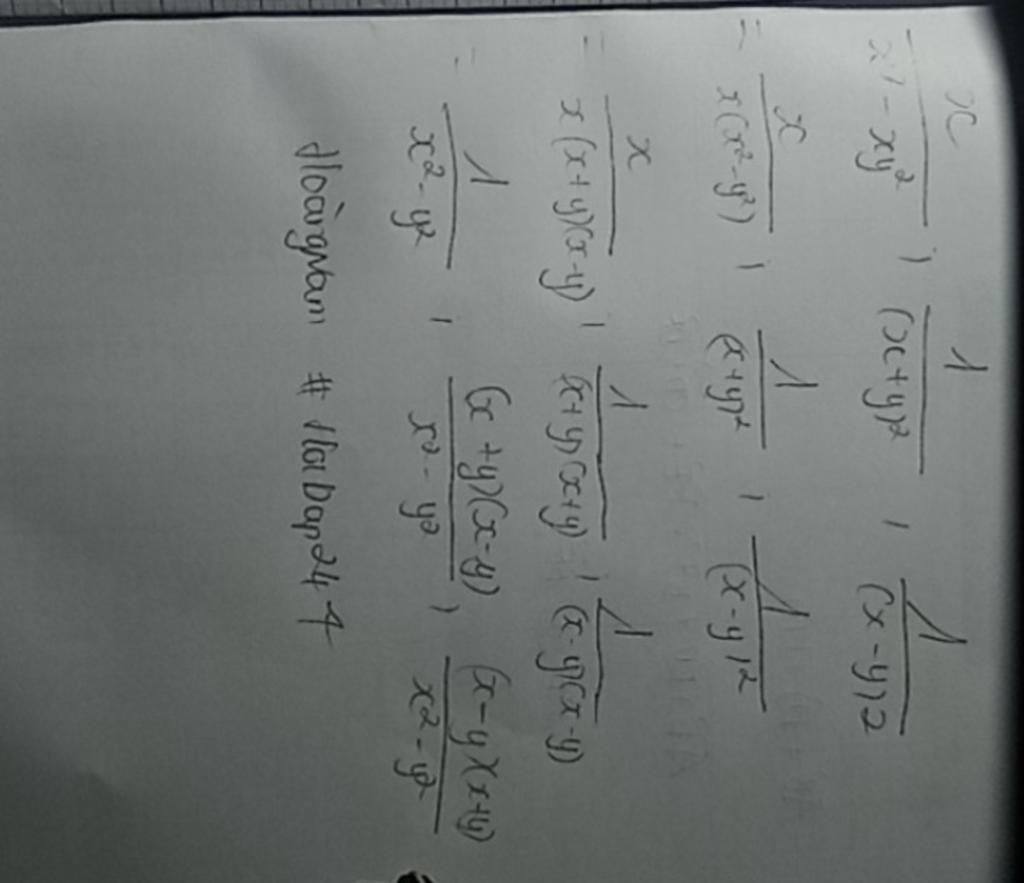 x/(x³ - xy²) , 1/(x+y)² , 1/(x-y)2
= x/(x(x²-y²)) , 1/(x+y)² , 1/(x-y)²
= x/(x(x+y)(x-y)) , 1/((x+y)(x+y)) , 1/((x-y)(x-y))
= 1/(x²-y²) , (x+y)(x-y)/(x²-y²) , (x-y)(x+y)/(x²-y²)
HoàngNam # HoiDap247